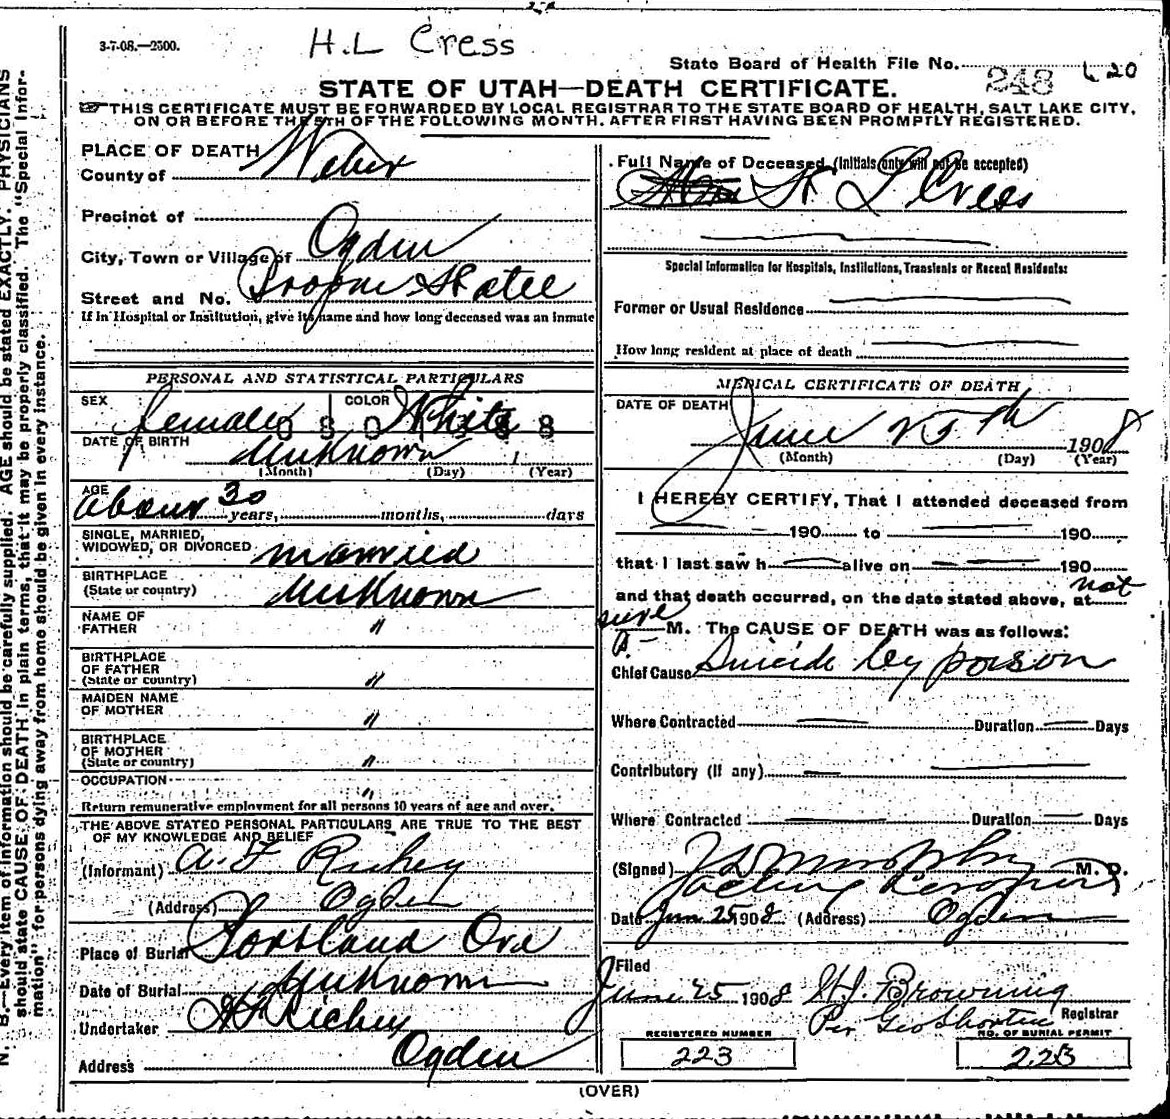 3-7-08.—2500.
H.L Cress
State Board of Health File No. 248 620
STATE OF UTAH—DEATH CERTIFICATE.
THIS CERTIFICATE MUST BE FORWARDED BY LOCAL REGISTRAR TO THE STATE BOARD OF HEALTH, SALT LAKE CITY,
ON OR BEFORE THE 5TH OF THE FOLLOWING MONTH. AFTER FIRST HAVING BEEN PROMPTLY REGISTERED.
PLACE OF DEATH
County of Weber
Precinct of
City, Town or Village of Ogden
Street and No.
If in Hospital or Institution, give its name and how long deceased was an inmate
PERSONAL AND STATISTICAL PARTICULARS
SEX female COLOR White
DATE OF BIRTH Unknown 1
(Month) (Day) (Year)
AGE about 30 years, months, days
SINGLE, MARRIED,
WIDOWED, OR DIVORCED married
BIRTHPLACE
(State or country) Unknown
NAME OF
FATHER "
BIRTHPLACE
OF FATHER
(State or country) "
MAIDEN NAME
OF MOTHER "
BIRTHPLACE
OF MOTHER
(State or country) "
OCCUPATION "
Return remunerative employment for all persons 10 years of age and over.
THE ABOVE STATED PERSONAL PARTICULARS ARE TRUE TO THE BEST
OF MY KNOWLEDGE AND BELIEF
(Informant) A. F Richey
(Address) Ogden
Place of Burial Portland Ore
Date of Burial Unknown
Undertaker Richey
Address Ogden
Full Name of Deceased (Initials only will not be accepted)
L Cress
Special Information for Hospitals, Institutions, Transients or Recent Residents:
Former or Usual Residence
How long resident at place of death
MEDICAL CERTIFICATE OF DEATH
DATE OF DEATH June 25th 1908
(Month) (Day) (Year)
I HEREBY CERTIFY, That I attended deceased from
190 to 190
that I last saw h alive on 190
and that death occurred, on the date stated above, at not
sure M. The CAUSE OF DEATH was as follows:
Chief Cause Suicide by poison
Where Contracted Duration Days
Contributory (if any)
Where Contracted Duration Days
(Signed) Murphy M. D.
Acting Coroner
Date Jun 25 1908 (Address) Ogden
Filed
June 25 1908 Browning
Per Geo Shorten Registrar
REGISTERED NUMBER NO. OF BURIAL PERMIT
223 223
(OVER)
N. B.—Every item of information should be carefully supplied. AGE should be stated EXACTLY. PHYSICIANS
should state CAUSE OF DEATH in plain terms, that it may be properly classified. The "Special Infor-
mation" for persons dying away from home should be given in every instance.